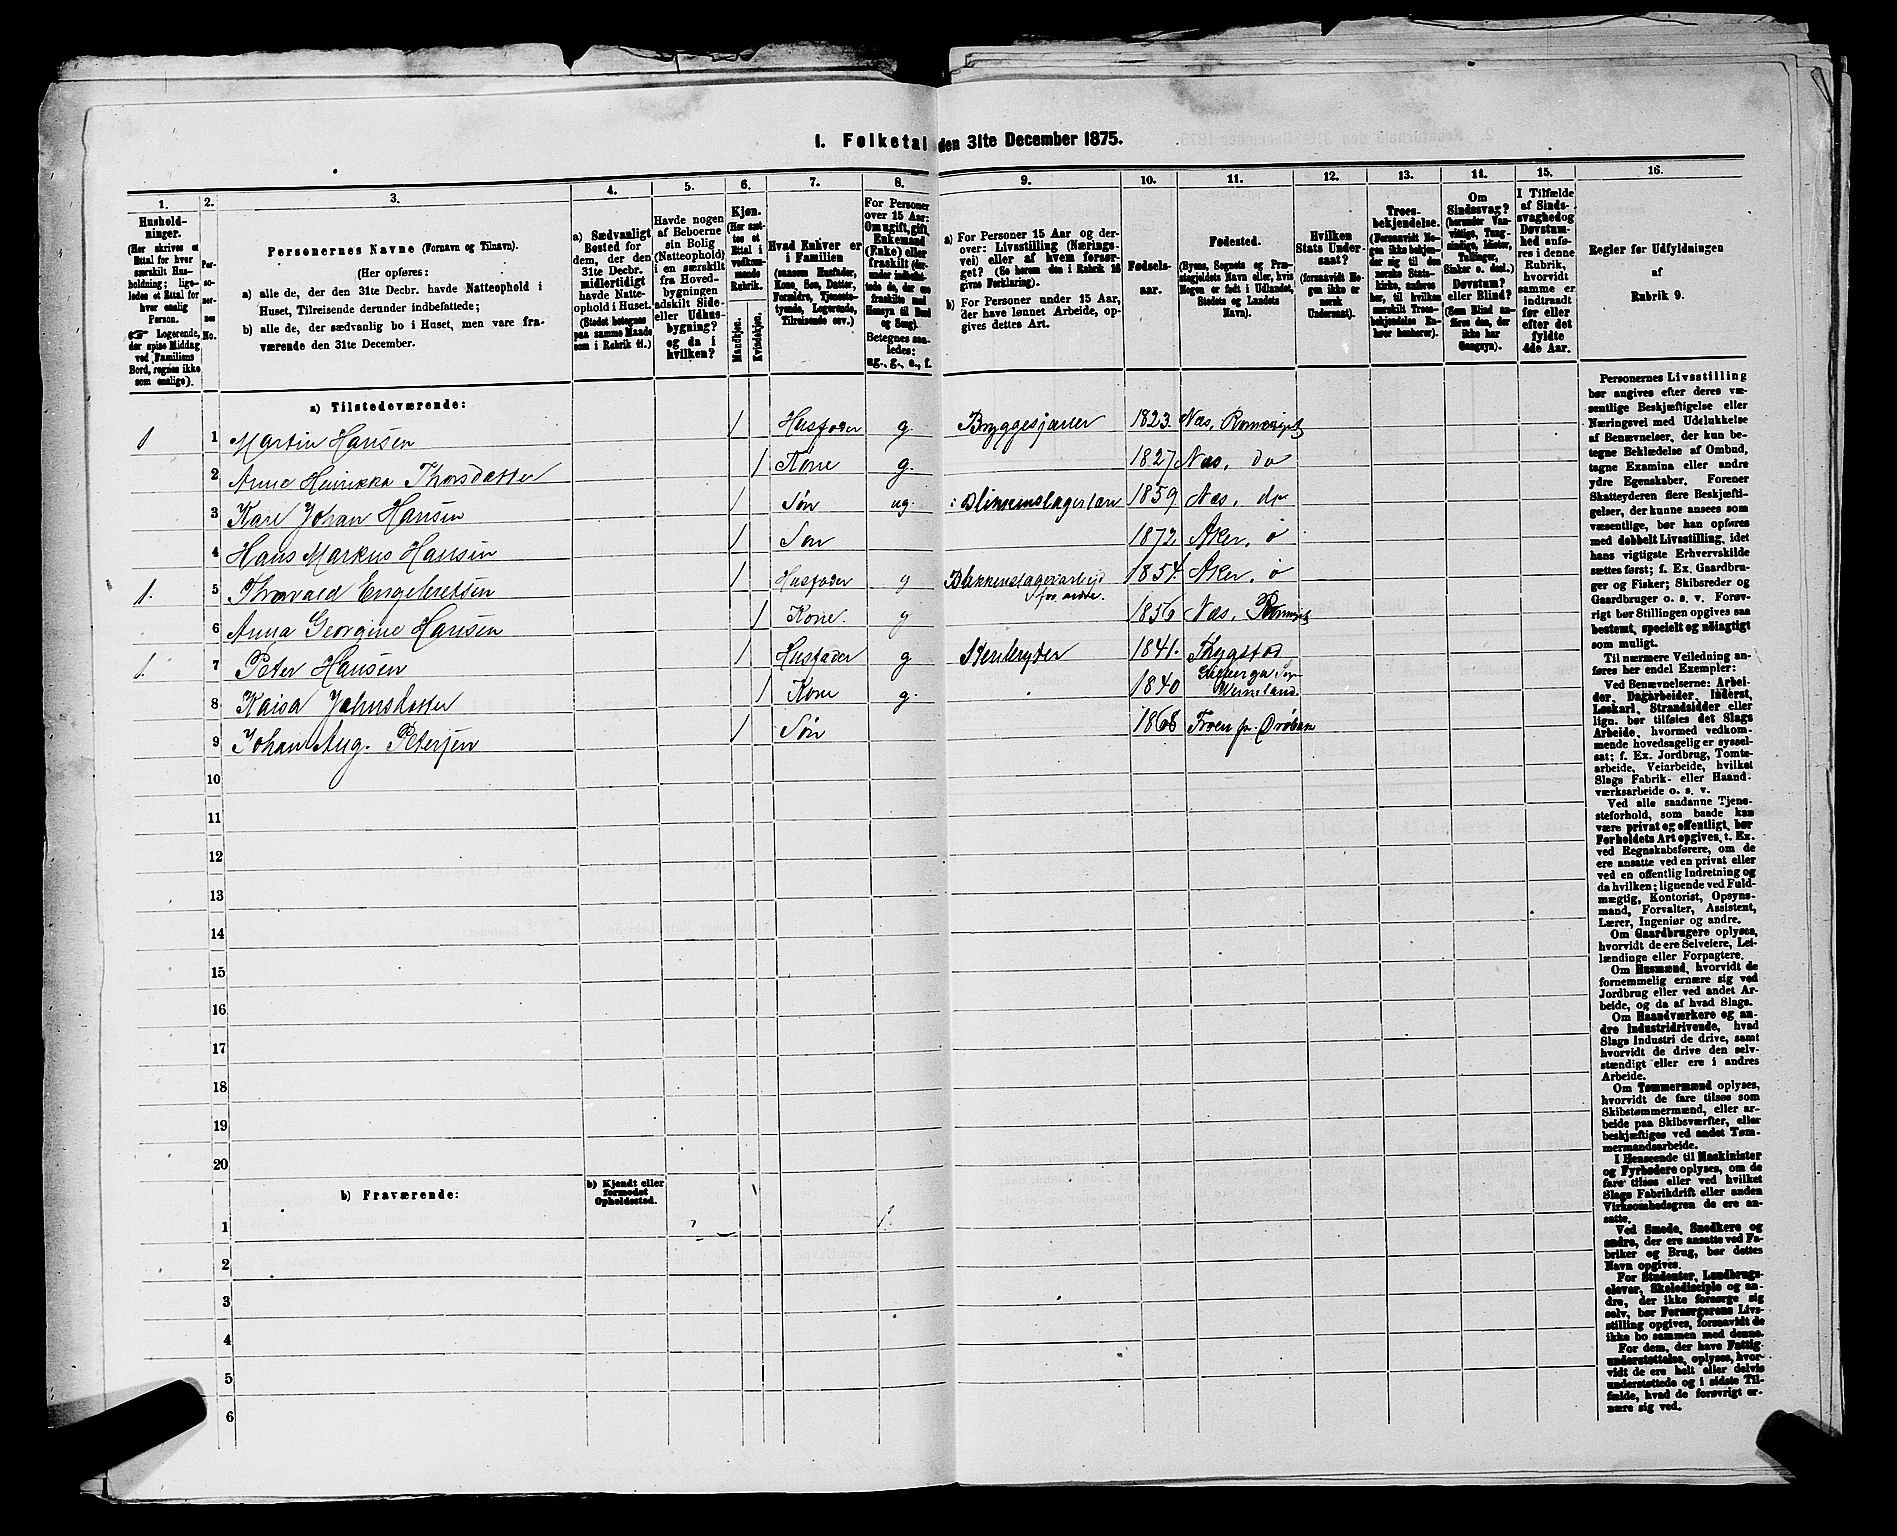 1. Folketal den 31te December 1875.
1. 2. 3. 4. 5. 6. 7. 8. 9. 10. 11. 12. 13. 14. 15. 16.
Hushold-
ninger.
(Her skrives et
Ettal for hver
særskilt Hus-
holdning; lige-
ledes et Ettal for
hver enslig
Person.
☞ Logerende,
der spise Middag
ved Familiens
Bord, regnes ikke
som enslige).
Per-
so-
ner-
nes
No.
Personernes Navne (Fornavn og Tilnavn).
(Her opføres:
a) alle de, der den 31te Decbr. havde Natteophold i
Huset, Tilreisende derunder indbefattede;
b) alle de, der sædvanlig bo i Huset, men vare fra-
værende den 31te December.
a) Sædvanligt
Bosted for
dem, der den
31te Decbr.
midlertidigt
havde Natte-
ophold i Huset.
(Stedet betegnes
paa samme Maade
som i Rubrik 11.)
Havde nogen
af Beboerne
sin Bolig
(Natteophold)
i en særskilt
fra Hoved-
bygningen
adskilt Side-
eller Udhus-
bygning?
og da i
hvilken?
Kjøn.
(Her sæt-
tes et
Ettal i
vedkom-
mende
Rubrik.
Mandkjøn.
Kvindekjøn.
Hvad Enhver er
i Familien
(saasom Husfader,
Kone, Søn, Datter,
Forældre, Tjeneste-
tyende, Logerende,
Tilreisende osv.)
For Personer
over 15 Aar:
Om ugift, gift,
Enkemand
(Enke) eller
fraskilt (der-
under indbefat-
tede de, der ere
fraskilte med
Hensyn til Bord
og Seng).
Betegnes saa-
ledes:
ug., g., e., f.
a) For Personer 15 Aar og der-
over: Livsstilling (Nærings-
vei) eller af hvem forsør-
get? (Se herom den i Rubrik 16
givne Forklaring).
b) For Personer under 15 Aar,
der have lønnet Arbeide, op-
gives dettes Art.
Fødsels-
aar.
Fødested.
(Byens, Sognets og Præ-
stegjeldets Navn eller, hvis
Nogen er født i Udlandet,
Stedets og Landets
Navn).
Hvilken
Stats Under-
saat?
(forsaavidt No-
gen ikke er
norsk
Undersaat).
Troes-
bekjendelse.
(Forsaavidt No-
gen ikke bekjen-
der sig til den
norske Stats-
kirke, anføres
her, til hvilken
særskilt Troes-
bekjendelse En-
hver henhører).
Om
Sindssvag?
(herunder Van-
vittige, Tung-
sindige, Idioter,
Tullinger,
Sinker o. desl.)
Døvstum?
eller Blind?
(Som Blind an-
føres den, der
ikke har
Gangsyn).
I Tilfælde
af Sinds-
svaghed og
Døvstum-
hed anfø-
res i denne
Rubrik,
hvorvidt
samme er
indtraadt
før eller
efter det
fyldte
4de Aar.
Regler for Udfyldningen
af
Rubrik 9.
a) Tilstedeværende:
1 1 Martin Hansen 1 Husfader g. Bryggesjauer 1823. Næs, Romerige
2 Anne Henrikka Thorsdatter 1 Kone g. 1827 Næs, do
3 Karl Johan Hansen 1 Søn ug. i Blikkenslagerlære 1859 Næs, do
4 Hans Markus Hansen 1 Søn 1872 Aker, ø
1. 5 Thorvald Engebretsen 1 Husfader g Blikkenslagerarbejd for andre. 1854. Aker, ø
6 Anna Georgine Hansen 1 Kone. g 1856 Næs, Romerige
1. 7 Peter Hansen 1 Husfader g Stenbryder 1841. Trygstad
8 Kaisa Johnsdatter 1 Kone g. 1840 Sogn Wermeland.
9 Johan Aug. Petersen 1 Søn 1868 Froen pr. Drøbak
10
11
12
13
14
15
16
17
18
19
20
b) Fraværende:
b) Kjendt eller
formodet
Opholdssted.
1
2
3
4
5
6
Personernes Livsstilling
bør angives efter deres væ-
sentlige Beskjæftigelse eller
Næringsvei med Udelukkelse
af Benævnelser, der kun be-
tegne Beklædelse af Ombud,
tagne Examina eller andre
ydre Egenskaber. Forener
Skatteyderen flere Beskjæfti-
gelser, der kunne ansees som
væsentlige, bør han opføres
med dobbelt Livsstilling, idet
hans vigtigste Erhvervskilde
sættes først; f. Ex. Gaardbru-
ger og Fisker; Skibsreder og
Gaardbruger o. s. v. Forøv-
rigt bør Stillingen opgives saa
bestemt, specielt og nøiagtigt
som muligt.
Til nærmere Veiledning an-
føres her endel Exempler:
Ved Benævnelserne: Arbei-
der, Dagarbeider, Inderst,
Løskarl, Strandsidder eller
lign. bør tilføies det Slags
Arbeide, hvormed vedkom-
mende hovedsagelig er syssel-
sat; f. Ex. Jordbrug, Tomte-
arbeide, Veiarbeide, hvilket
Slags Fabrik- eller Haand-
værksarbeide o. s. v.
Ved alle saadanne Tjene-
steforhold, som baade kan
være privat og offentligt, bør
Forholdets Art opgives, t. Ex.
ved Regnskabsførere, om de
ere ansatte ved en privat eller
ved en offentlig Indretning og
da hvilken; lignende ved Fuld-
mægtig, Kontorist, Opsyns-
mand, Forvalter, Assistent,
Lærer, Ingeniør og andre.
Om Gaardbrugere oplyses,
hvorvidt de ere Selveiere, Lei-
lændinge eller Forpagtere.
Om Husmænd, hvorvidt de
fornemmelig ernære sig ved
Jordbrug eller ved andet Ar-
beide, og da af hvad Slags.
Om Haandværkere og an-
dre Industridrivende, hvad
Slags Industri de drive, samt
hvorvidt de drive den selv-
stændigt eller ere i andres
Arbeide.
Om Tømmermænd oplyses,
hvorvidt de fare tilsøs som
Skibstømmermænd, eller ar-
beide paa Skibsværfter, eller
beskjæftiges ved andet Tøm-
mermandsarbeide.
I Henseende til Maskinister
og Fyrbødere oplyses, om de
fare tilsøs eller ved hvilket
Slags Fabrikdrift eller anden
Virksomhedsgren de ere an-
satte.
Ved Smede, Snedkere og
andre, der ere ansatte ved Fa-
briker og Brug, bør dettes
Navn opgives.
For Studenter, Landbrugs-
elever, Skoledisciple og an-
dre, der ikke forsørge sig
selv, bør Forsørgerens Livs-
stilling opgives, forsaavidt de
ikke bo sammen med denne.
For dem, der have Fattig-
understøttelse, oplyses, hvor-
vidt de ere helt eller delvis
understøttede og i sidste Til-
fælde, hvad de forøvrigt er-
nære sig ved.